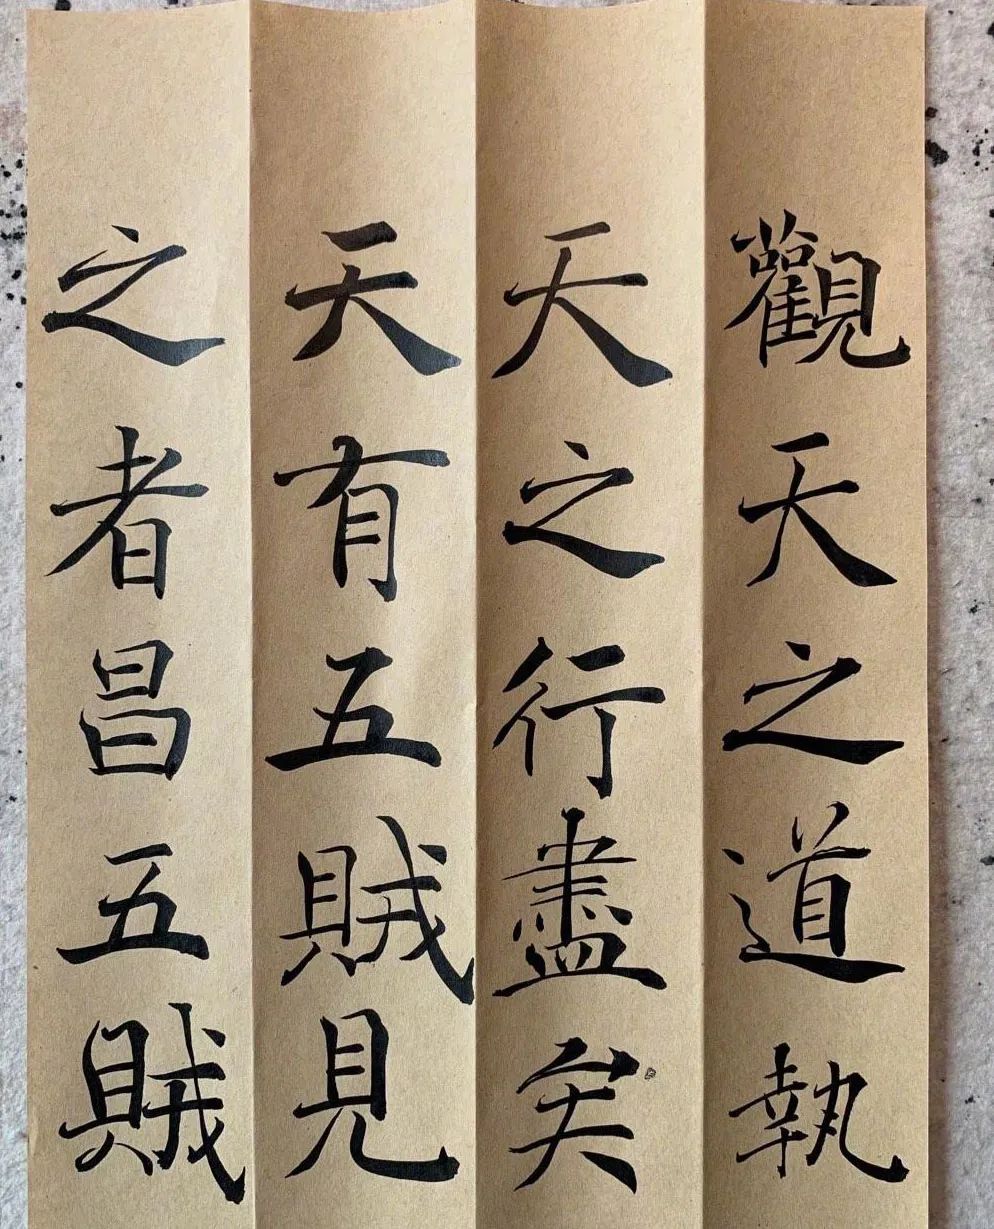 觀天之道執
天之行盡矣
天有五賊見
之者昌五賊